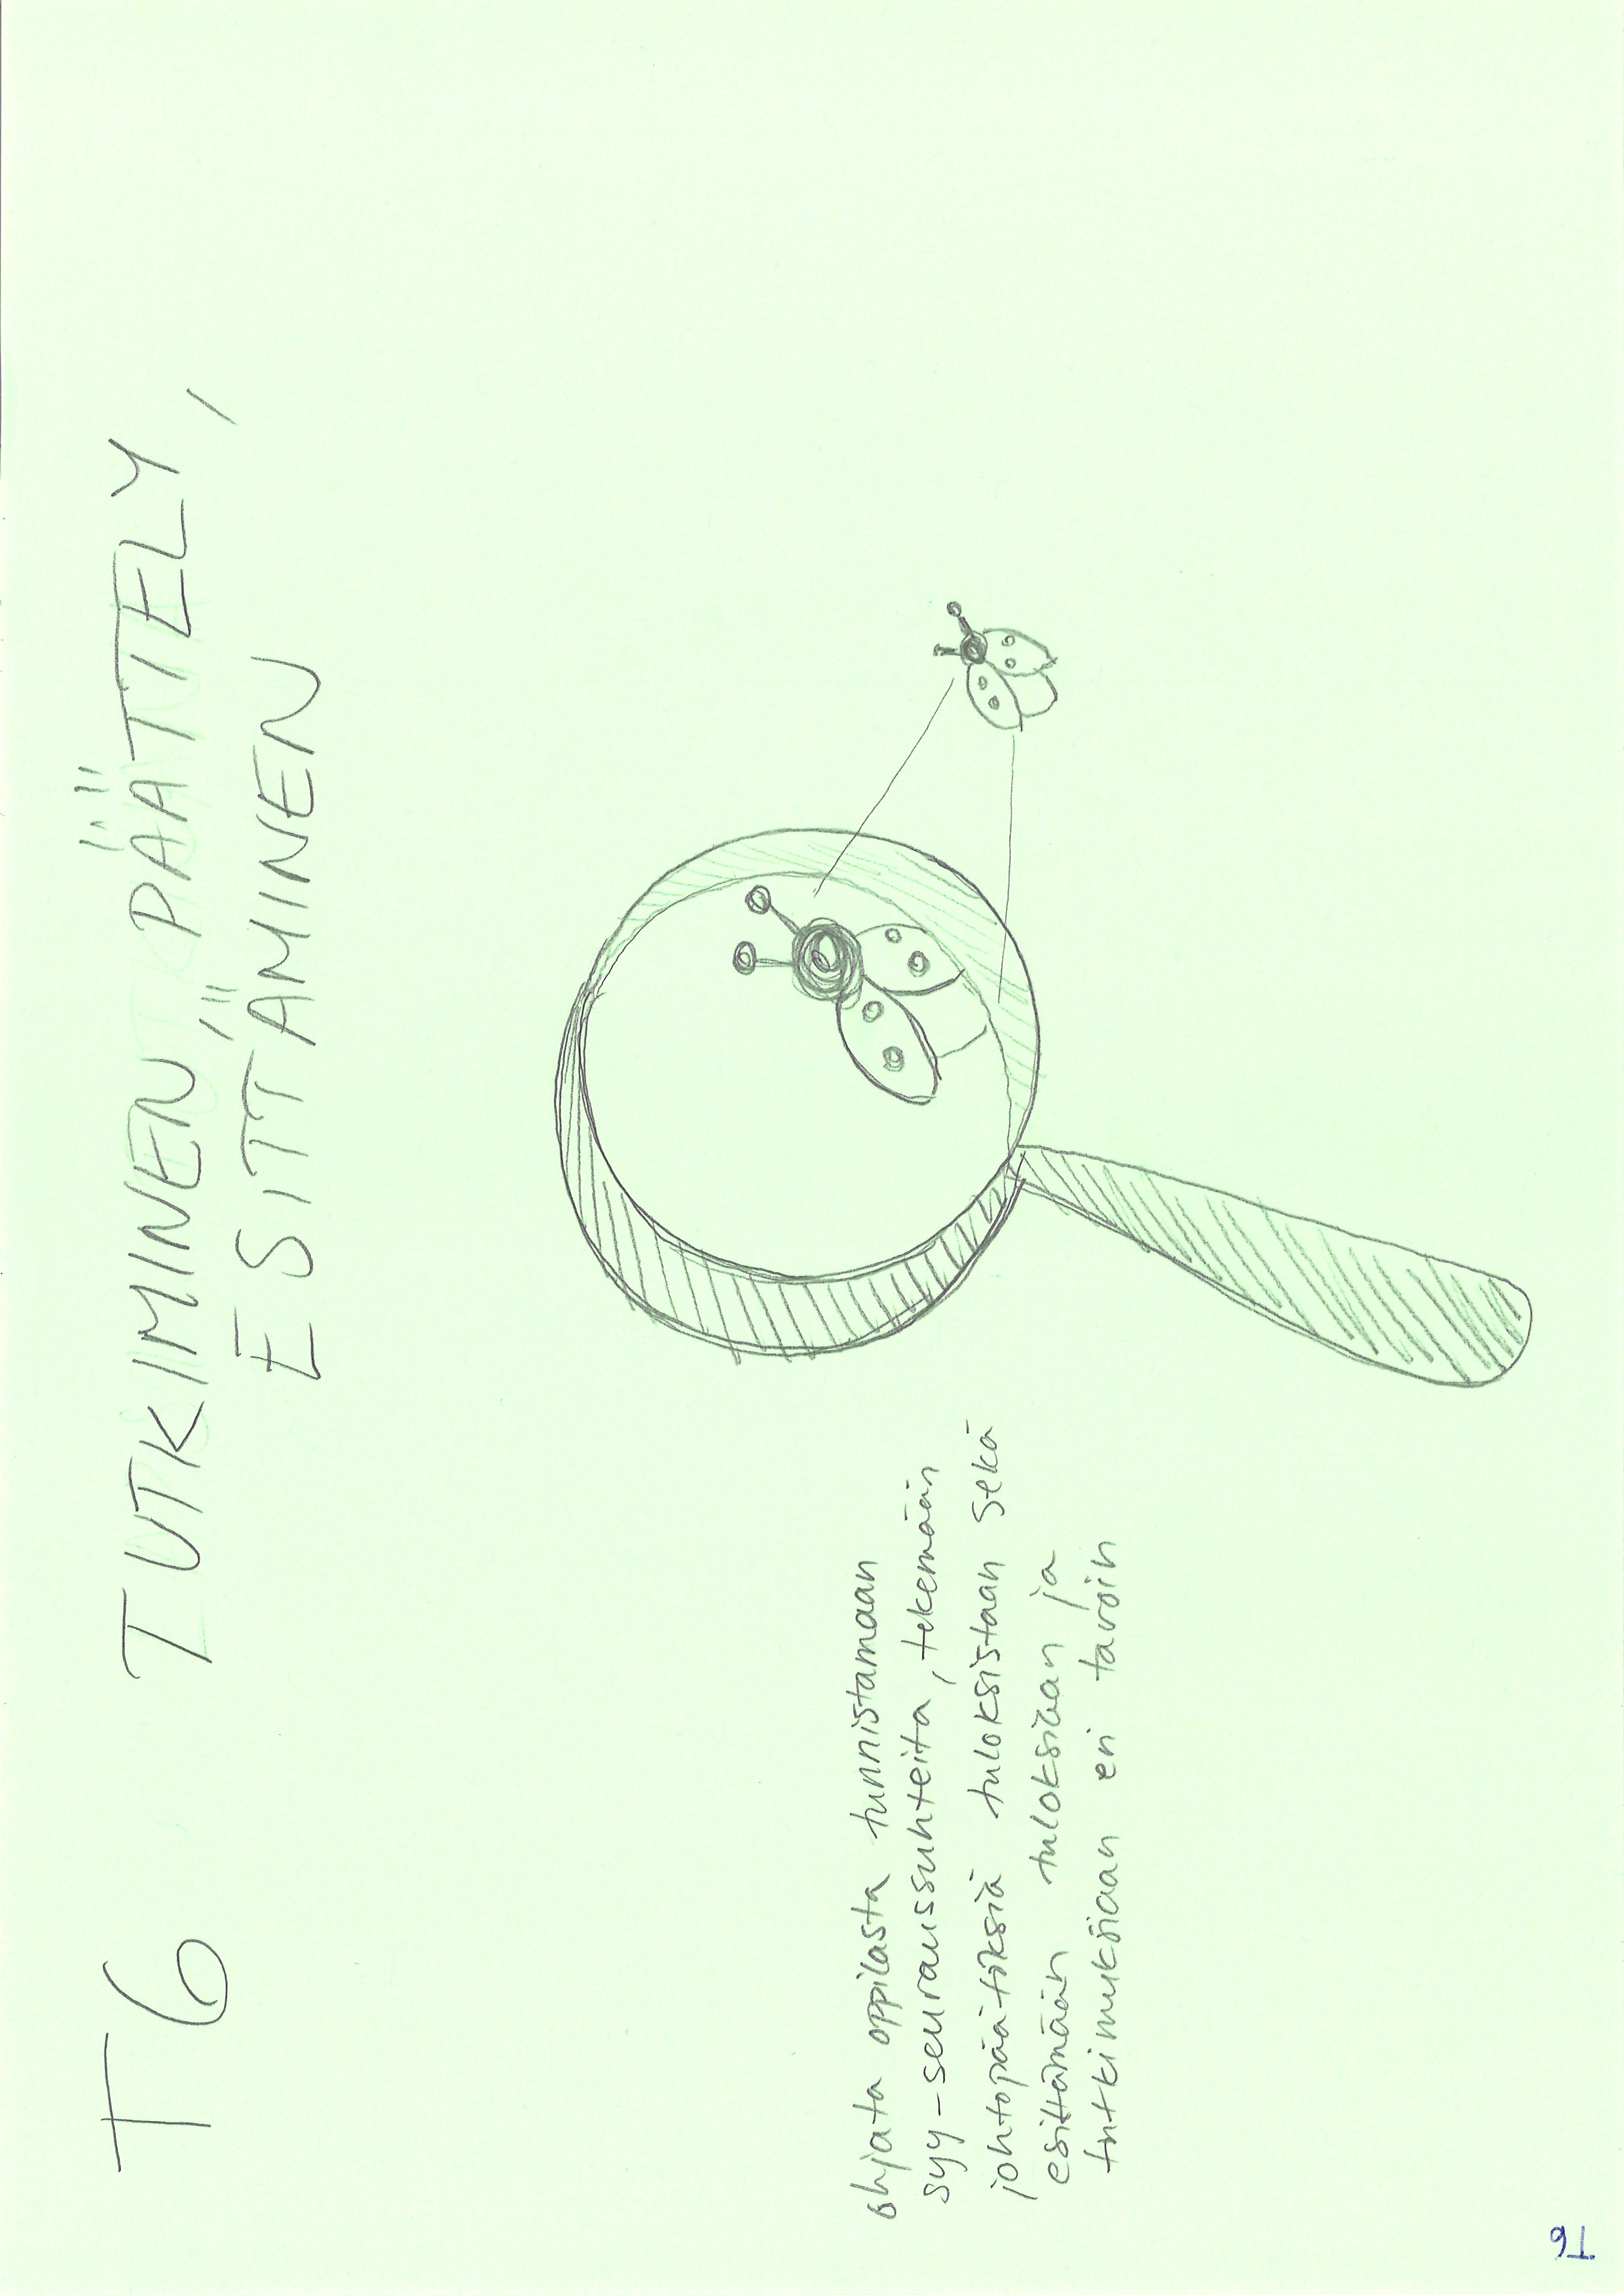 T6 TUTKIMINEN, PÄÄTTELY,
ESITTÄMINEN
ohjata oppilasta tunnistamaan
syy-seuraussuhteita, tekemään
johtopäätöksiä tuloksistaan sekä
esittämään tuloksiaan ja
tutkimuksiaan eri tavoin
T6